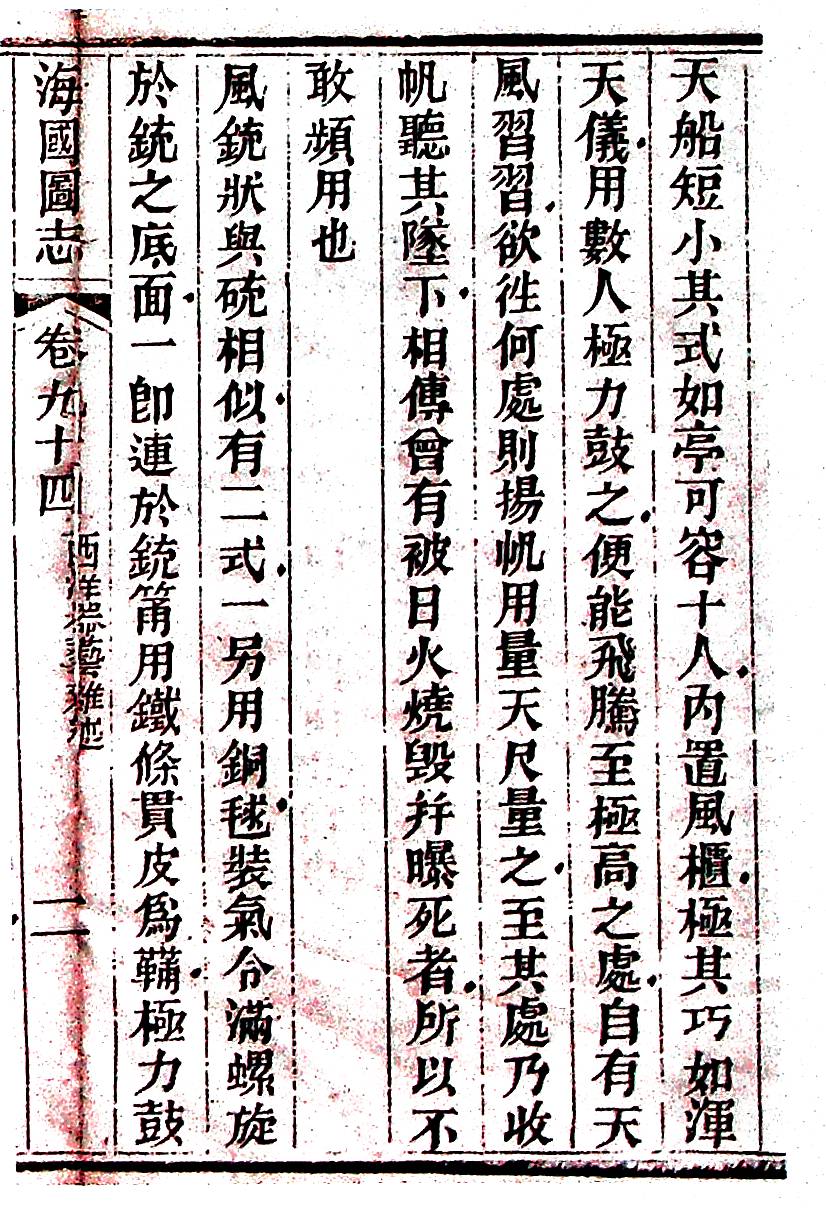 天船短小其式如亭可容十人內置風櫃極其巧如渾
天儀用數人極力鼓之便能飛騰至極高之處自有天
風習習欲徃何處則揚帆用量天尺量之至其處乃收
帆聽其墜下相傳曾有被日火燒毀幷曝死者所以不
敢頻用也
風銃狀與硫相似有二式一另用銅毬裝氣令滿螺旋
於銃之底面一卽連於銃筩用鐵條貫皮爲鞴極力鼓
海國圖志 卷九十四 西洋器藝雜述 二